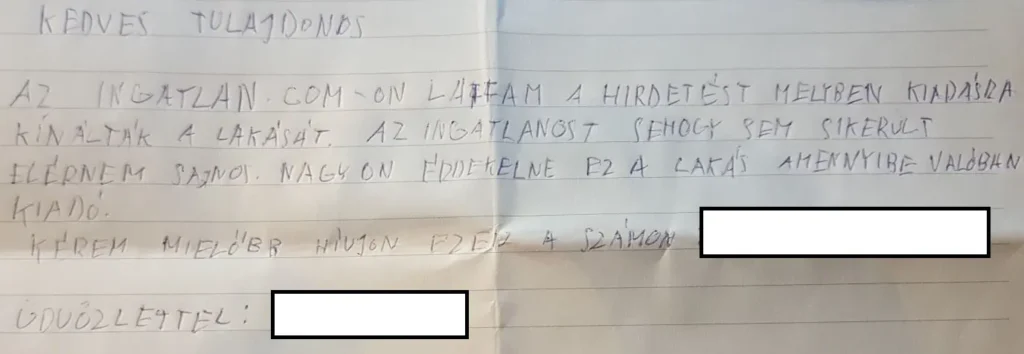 KEDVES TULAJDONOS
AZ INGATLAN.COM-ON LÁTTAM A HIRDETÉST MELYBEN KIADÁSRA
KÍNÁLTÁK A LAKÁSÁT. AZ INGATLANOST SEHOGY SEM SIKERULT
ELÉRNEM SAJNOS. NAGYON ÉRDEKELNE EZ A LAKÁS AMENNYIBE VALÓBAN
KIADÓ.
KÉREM MIELŐBB HÍVJON EZEN A SZÁMON
ÜDVÖZLETTEL: